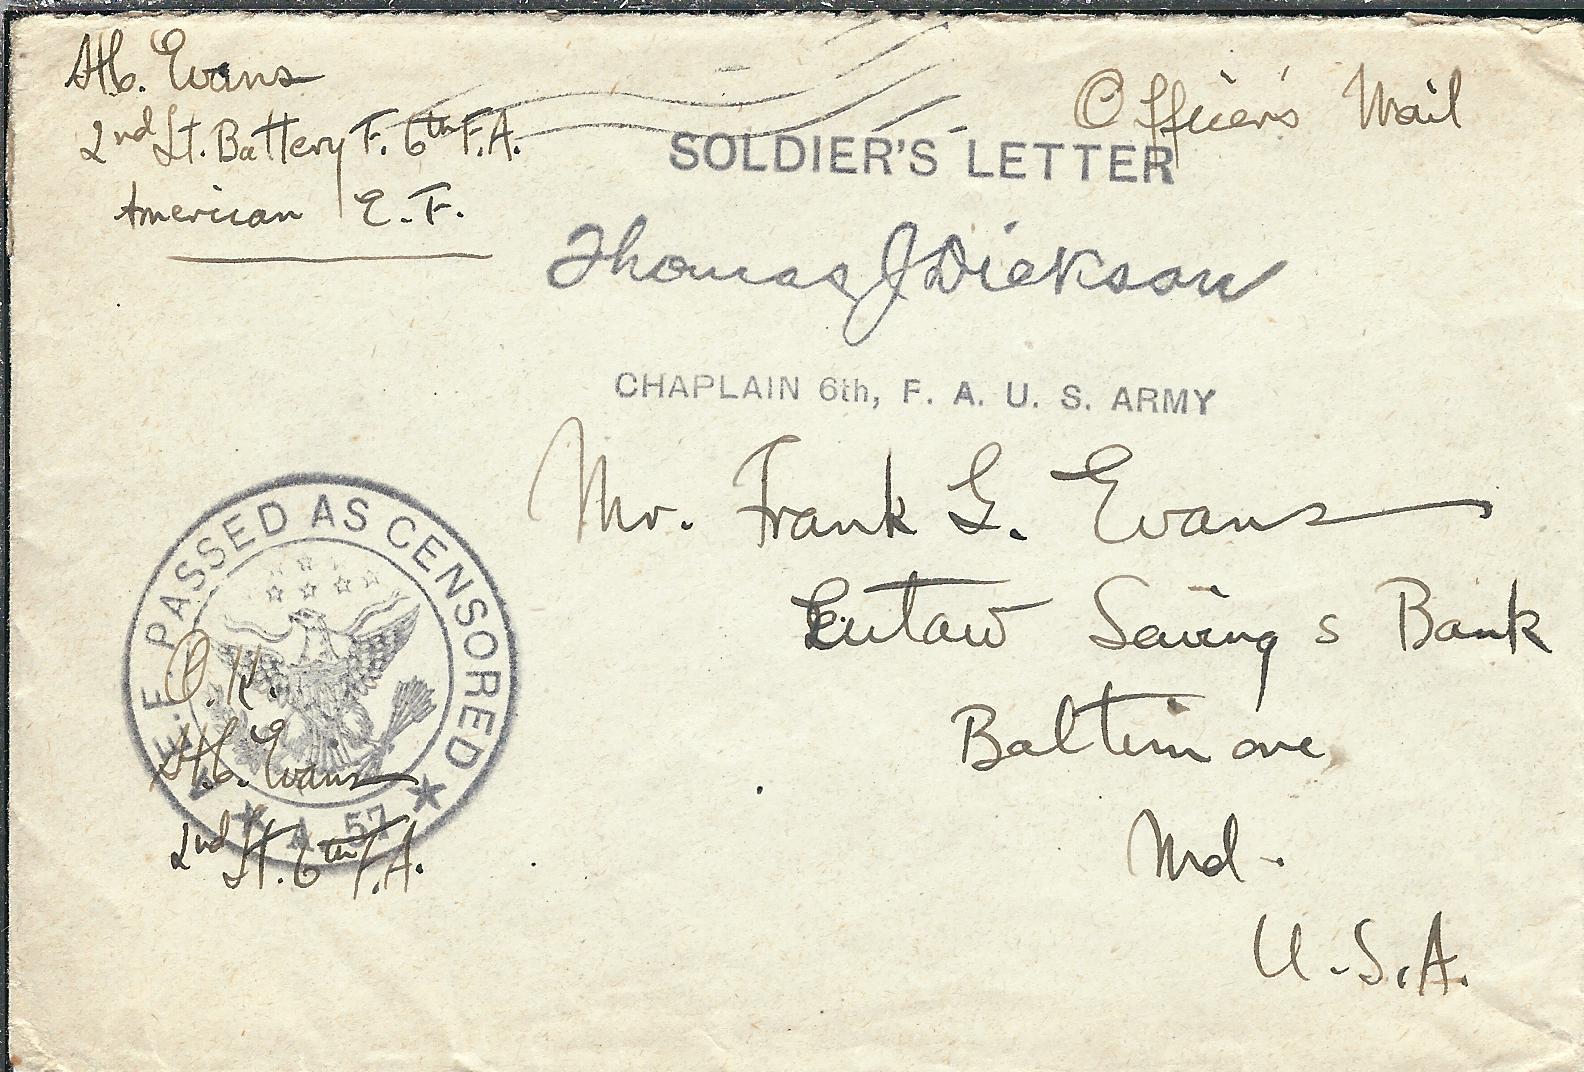 H.C. Evans
2nd Lt. Battery F. 6th F.A.
American E.F.
Officer's Mail
SOLDIER'S LETTER
Thomas J Dickson
CHAPLAIN 6th, F. A. U. S. ARMY
Mr. Frank G. Evans
Eutaw Savings Bank
Baltimore
Md.
U.S.A.
A.E.F. PASSED AS CENSORED
A. 57
O.K.
H.C. Evans
2nd Lt. 6th F.A.